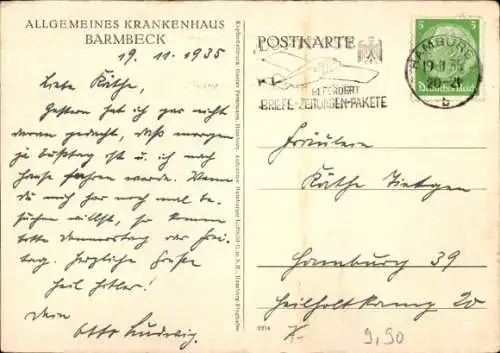 ALLGEMEINES KRANKENHAUS
BARMBECK
19. 11. 1935
Liebe Käthe,
Gestern hab ich gar nicht
daran gedacht, daß morgen
ja Bußtag ist u. ich nach
Hause fahren werde. Wenn
du mich hier noch mal be-
suchen willst, so komme
bitte Donnerstag oder Frei-
tag. Herzliche Grüße
Heil Hitler!
Dein
Otto Ludwig.
POSTKARTE
BEFÖRDERT
BRIEFE-ZEITUNGEN-PAKETE
HAMBURG
19.11.35
20-21
5 5
Deutsches Reich
Fräulein
Käthe Tietgen
Hamburg 39
Heilholtkamp 20
2274
X- 9,50